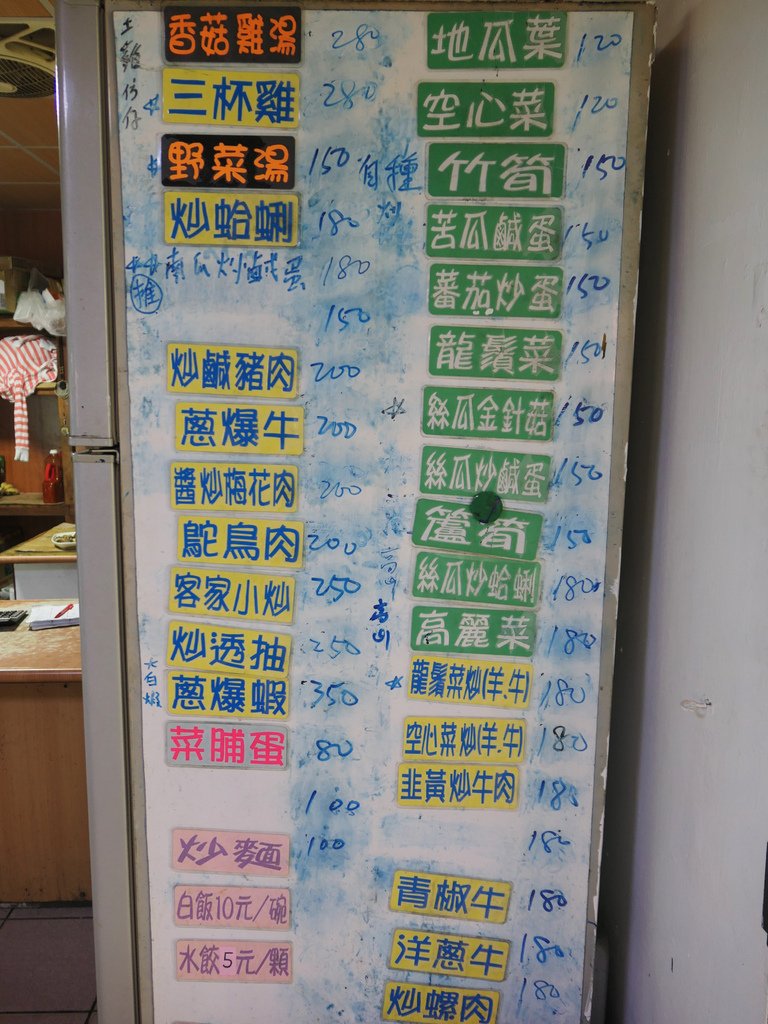 土雞仔仔
香菇雞湯 280
三杯雞 280
野菜湯 150
炒蛤蜊 180
推 南瓜炒鹹蛋 180
150
炒鹹豬肉 200
蔥爆牛 200
醬炒梅花肉 200
鴕鳥肉 200
客家小炒 250
炒透抽 250
大白蝦
蔥爆蝦 350
菜脯蛋 80
100
炒麵 100
白飯10元/碗
水餃5元/顆
地瓜葉 120
空心菜 120
自種 竹筍 150
炒
苦瓜鹹蛋 150
蕃茄炒蛋 150
龍鬚菜 150
絲瓜金針菇 150
絲瓜炒鹹蛋 150
高山 蘆筍 150
絲瓜炒蛤蜊 180
高山 高麗菜 180
龍鬚菜炒(羊.牛) 180
空心菜炒(羊.牛) 180
韭黃炒牛肉 180
180
青椒牛 180
洋蔥牛 180
炒螺肉 180